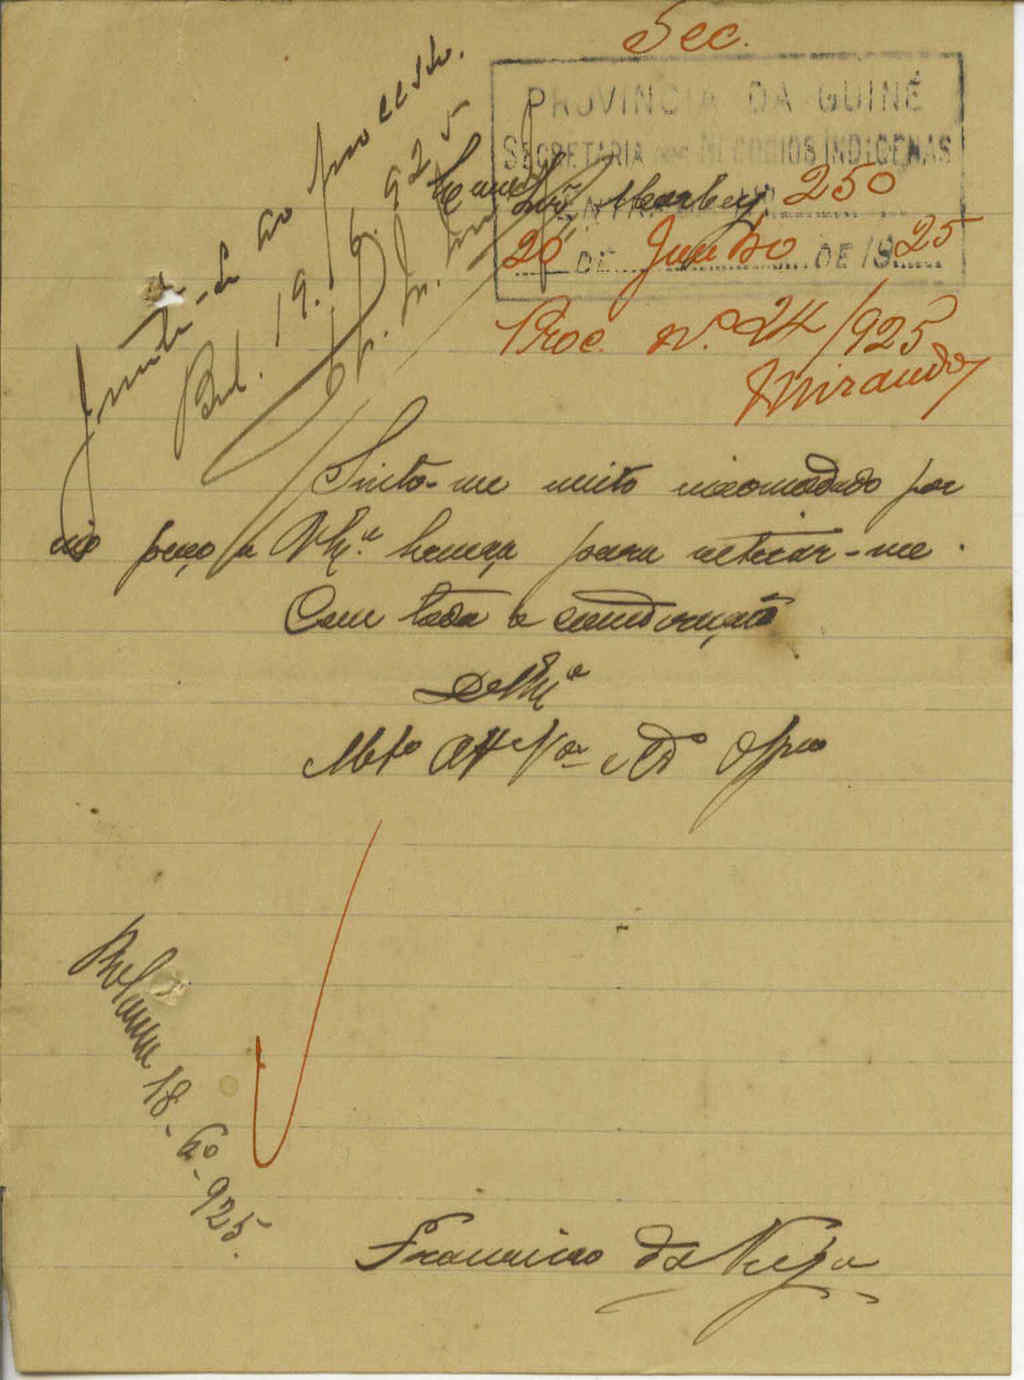 Sec.
PROVINCIA DA GUINÉ
SECRETARIA DOS NEGOCIOS INDIGENAS
ENTRADA 250
20 DE Junho DE 1925
Proc. nº 24/925
Miranda
Junte-se ao processo.
Bol. 19.6.925
Sinto-me muito incomodado por
isso peço a V. Ex.ª licença para retirar-me.
Com toda a consideração
De V. Ex.ª
Mtº Attº Vor
Bolama 18-6º-925.
Francisco da Veiga